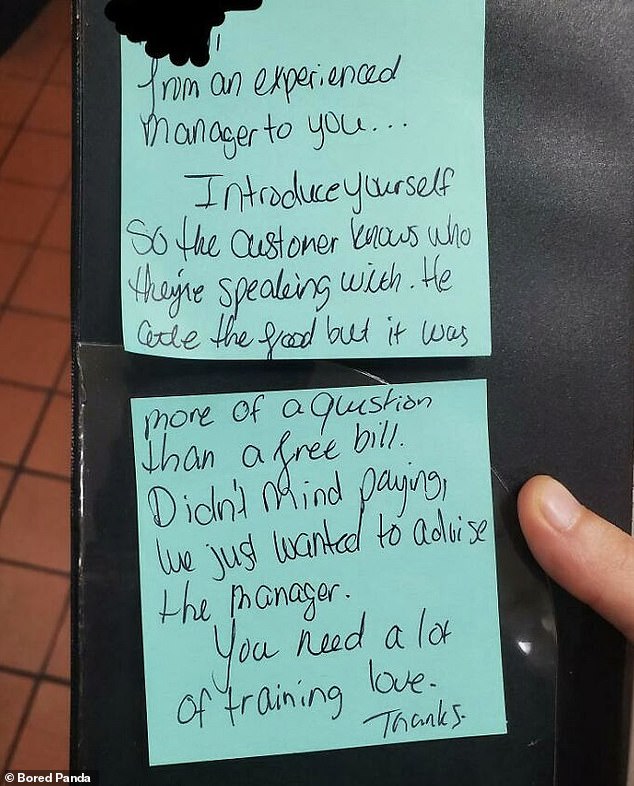 from an experienced
manager to you...
Introduce yourself
So the customer knows who
they're speaking with. He
ate the food but it was
more of a question
than a free bill.
Didn't mind paying,
we just wanted to advise
the manager.
You need a lot
of training love.
Thanks.
© Bored Panda